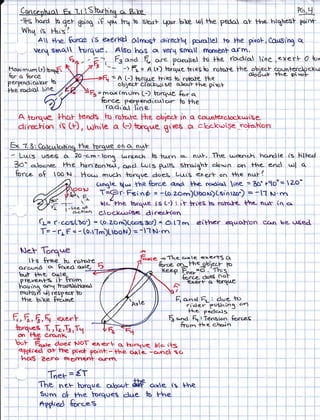 Conceptual Ex 7.1: Starting a Bike
Pg. 4
- It's hard to get going if you try to start your bike w/ the pedal at the highest point.
Why is this?
All the force is exerted almost directly parallel to the pivot, causing a
very small torque. Also has a very small moment arm.
F3 and F4 are parallel to the radial line, exert 0
F1 = A (+) torque tries to rotate the object counterclockwise
about the pivot
Maximum (+) torque
for a force
perpendicular to
the radial line
F5 = A (-) torque tries to rotate the
object clockwise about the pivot
= maximum (-) torque for a
force perpendicular to the
radial line
A torque that tends to rotate the object in a counterclockwise
direction is (+), while a (-) torque gives a clockwise rotation
Ex 7.8: Calculating the torque on a nut
- Luis uses a 20-cm-long wrench to turn a nut. The wrench handle is tilted
30° above the horizontal, and Luis pulls straight down on the end w/ a
force of 100 N. How much torque does Luis exert on the nut?
Angle b/w the force and the radial line = 30° + 90° = 120°
T = -rF sin φ = -(0.20m)(100N)(sin 120°) = -17 N·m
the torque is (-) it tries to rotate the nut in a
clockwise direction
r⊥ = r cos(30°) = (0.20m)(cos 30°) = 0.17m either equation can be used
T = -r⊥F = -(0.17m)(100N) = -17 N·m
Net Torque
It's free to rotate
around a fixed axle,
but the axle
prevents it from
having any translational
motion w/ respect to
the bike frame
The axle exerts a
force on the object to
keep Fnet = 0. This
force does not
exert a torque
Axle
F1 and F2: due to
rider pushing on
the pedals
F3 and F4: Tension forces
from the chain
F1, F2, F3, F4 exert
torques T1, T2, T3, T4
on the crank
but Faxle does NOT exert a torque b/c it's
applied at the pivot point - the axle - and so
has zero moment arm
Tnet = ΣT
The net torque about the axle is the
sum of the torques due to the
applied forces